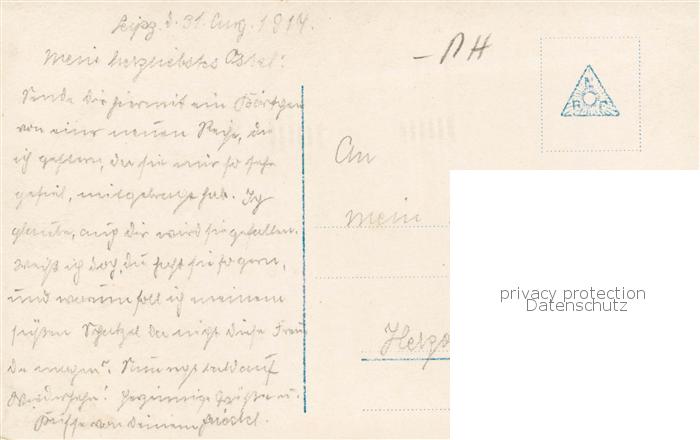 Leipz. d. 31. Aug. 1914.
Mein herzliebstes
Sende dir hiermit ein Kärtchen
von einer neuen Reihe, die
ich gestern, da sie mir so sehr
gefiel, mitgebracht hab. Ich
glaube, auch dir wird sie gefallen.
Weiß ich doch, du hast sie so gern,
und warum soll ich meinem
süßen Schatzel da nicht diese Freu-
de machen? Nun
Wiedersehn! Herzinnige Grüße u.
Küsse von deinem
An
Mein
Herzo
privacy protection
Datenschutz